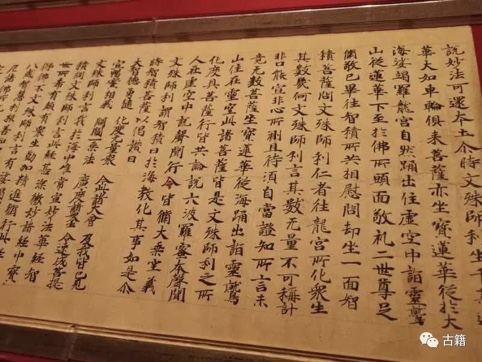 說妙法可還本土尒時文殊師利坐千葉蓮
華大如車輪俱來菩薩亦坐寶蓮華從於大
海娑竭羅龍宮自然踊出住虛空中詣靈鷲
山從蓮華下至於佛所頭面敬礼二世尊足
脩敬已畢往智積所共相慰問却坐一面智
積菩薩問文殊師利仁者往龍宮所化衆生
其數幾何文殊師利言其數无量不可稱計
非口能宣非心所測且待須臾自當證知所言未
竟无數菩薩坐寶蓮華從海踊出詣靈鷲
山住在虛空此諸菩薩皆是文殊師利之所
化度具菩薩行皆共論說六波羅蜜本聲聞
人在虛空中說聲聞行今皆脩大乘空義
文殊師利謂智積曰於海教化其事如是尒
時智積菩薩以偈讚曰
大智德勇健 化度无量衆 今此諸大會 及我皆已見
演暢實相義 開闡一乘法 廣度諸
文殊師利言我於海中唯常宣說妙法華經智
積問文殊師利言此經甚深微妙諸經中寶
世所希有頗有衆生勤加精進脩行此經
得佛不文殊師利言有娑竭羅龍
八歲智
古籍